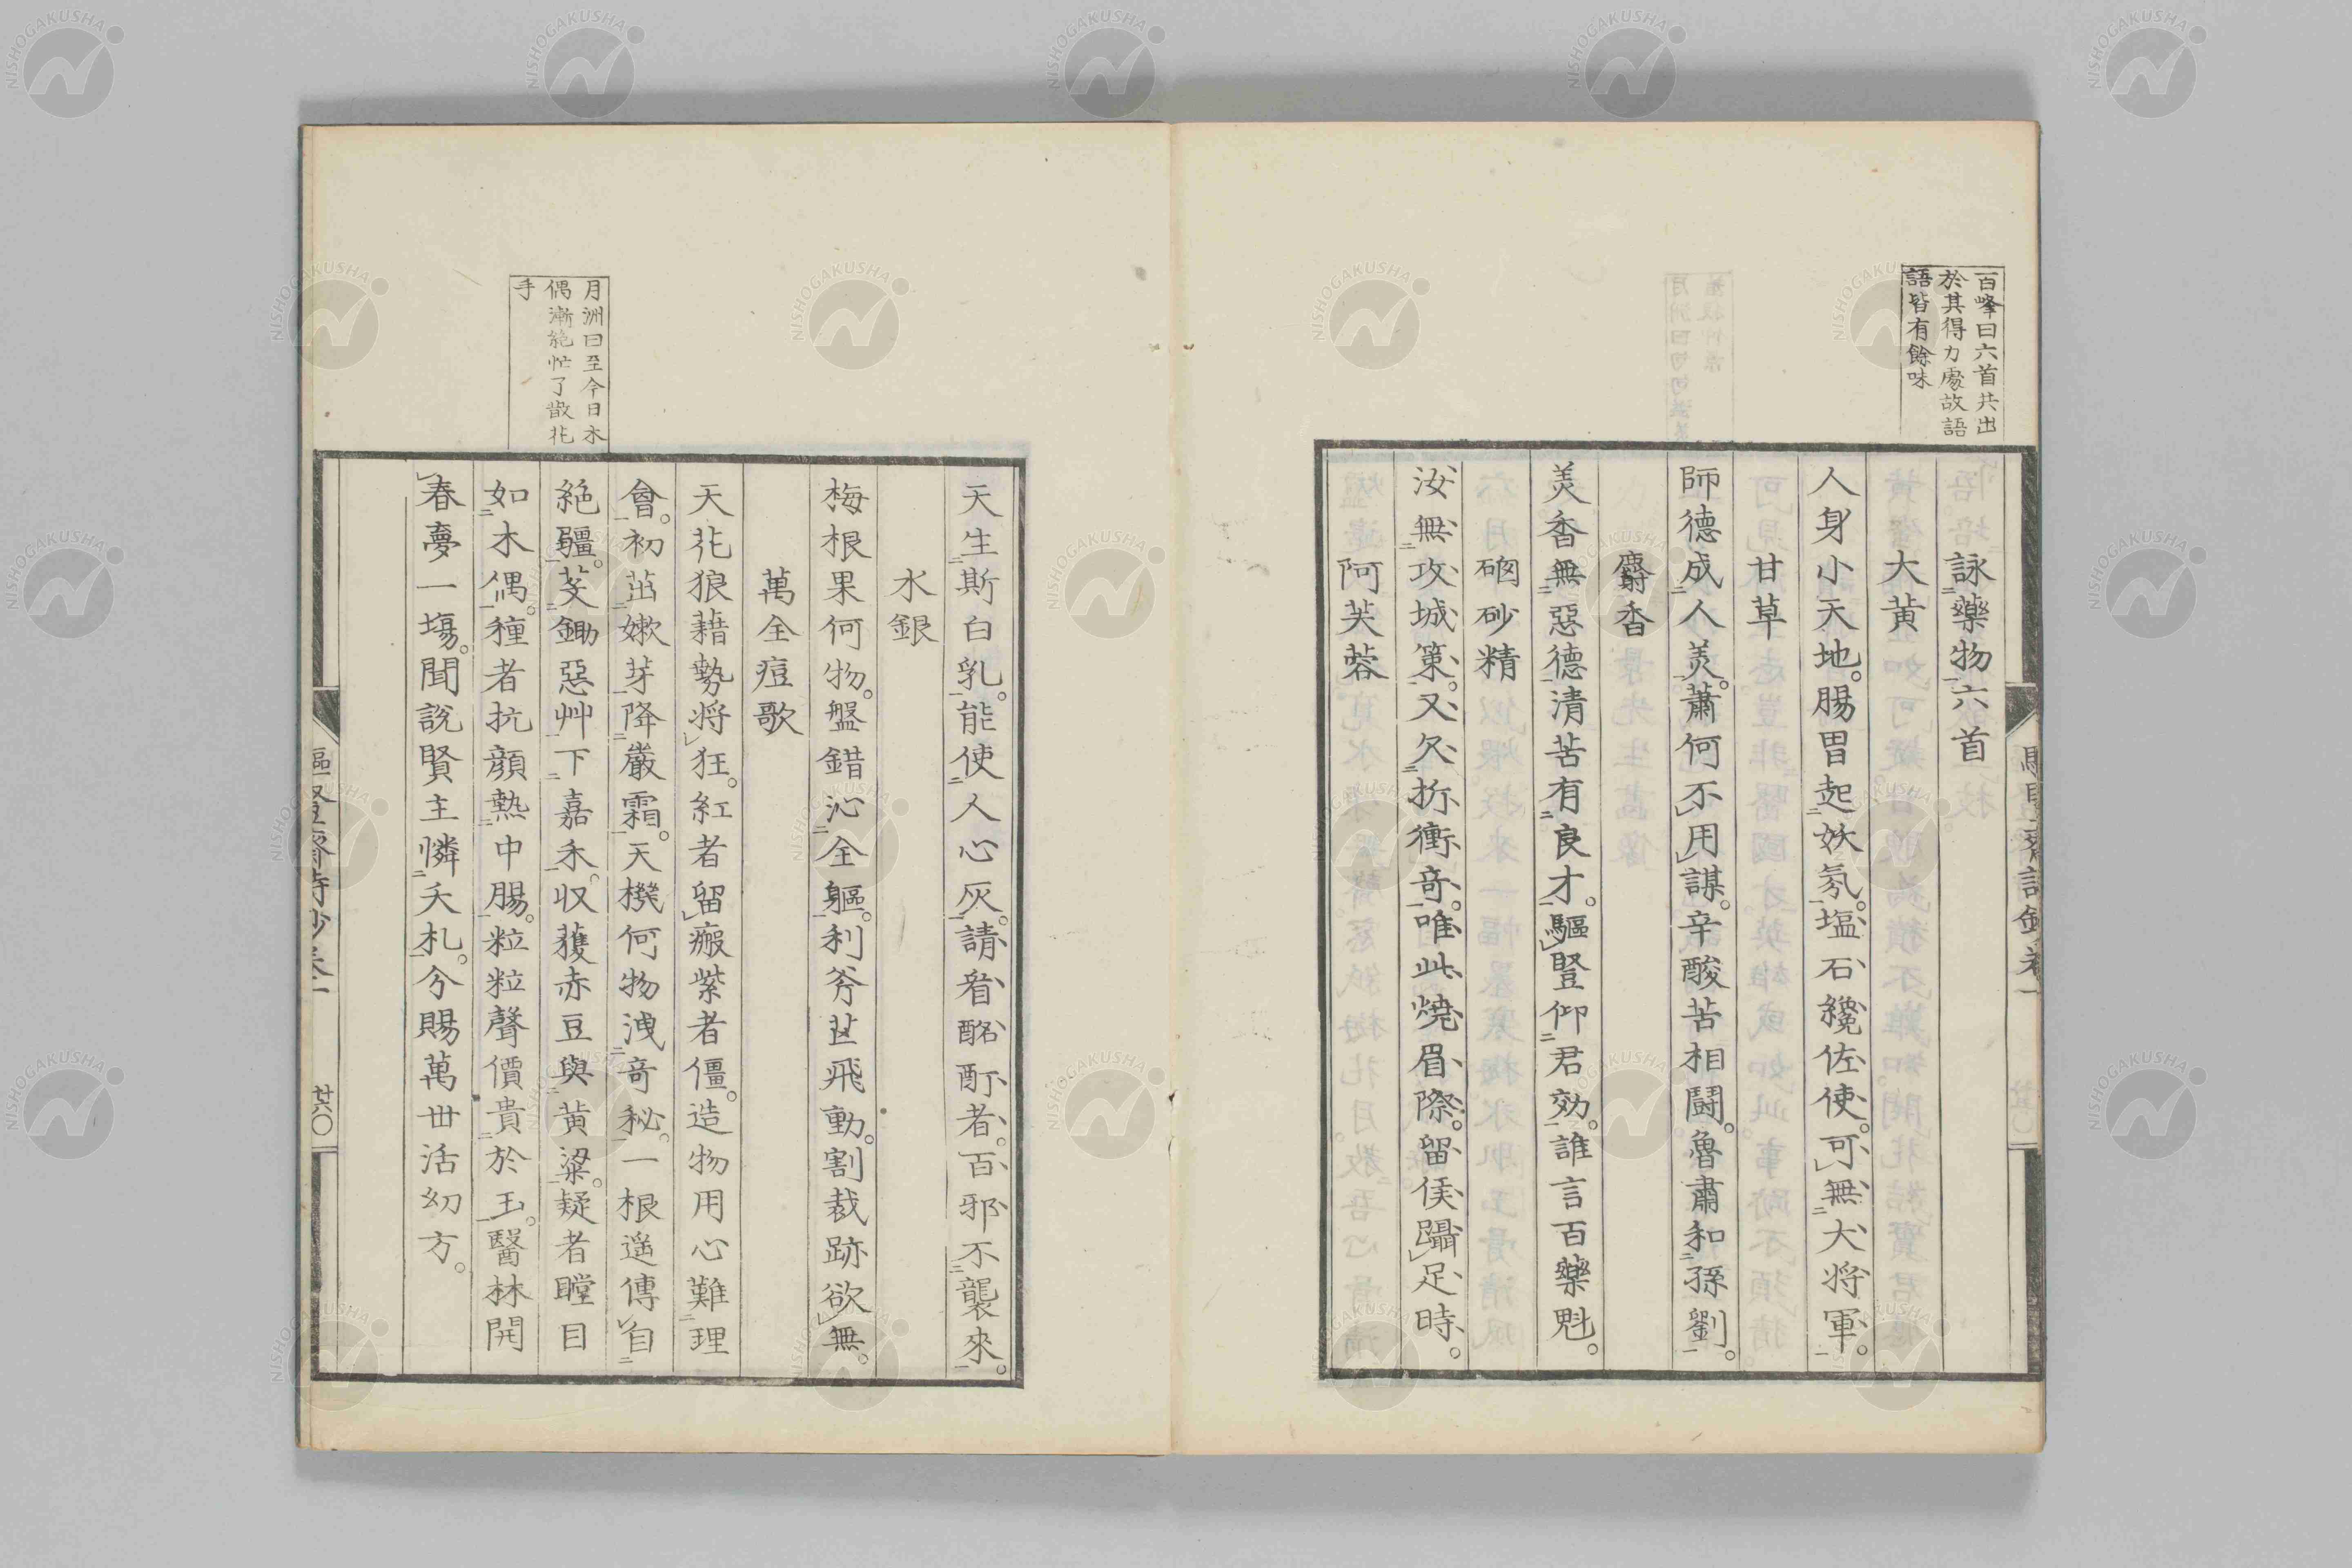 百峰曰六首共出
於其得力處故語
語皆有餘味
詠藥物六首
大黃
人身小天地。腸胃起妖氛。塩石纔佐使。可無大將軍。
甘草
師德成人美。蕭何不用謀。辛酸苦相鬪。魯肅和孫劉。
麝香
美香無惡德清苦有良才。驅豎仰君効。誰言百藥魁。
硇砂精
汝無攻城策。又欠折衝奇。唯此燒眉際。留侯躡足時。
阿芙蓉
驅豎齋詩鈔卷一
月洲曰至今日木
偶漸絕忙了散花
手
天生斯白乳。能使人心灰。請看酩酊者。百邪不襲來。
水銀
梅根果何物。盤錯沁全軀。利斧甚飛動。割裁跡欲無。
萬全痘歌
天花狼藉勢將狂。紅者留瘢紫者僵。造物用心難理
會。初茁嫩芽降嚴霜。天機何物洩奇秘。一根遙傳自
絕疆。芟鋤惡艸下嘉禾。収蒦赤豆與黃粱。疑者瞠目
如木偶。種者抗顏熱中腸。粒粒聲價貴於玉。醫林開
春夢一塲。聞說賢主憐夭札。今賜萬世活幼方。
驅豎齋詩鈔卷一
廿六